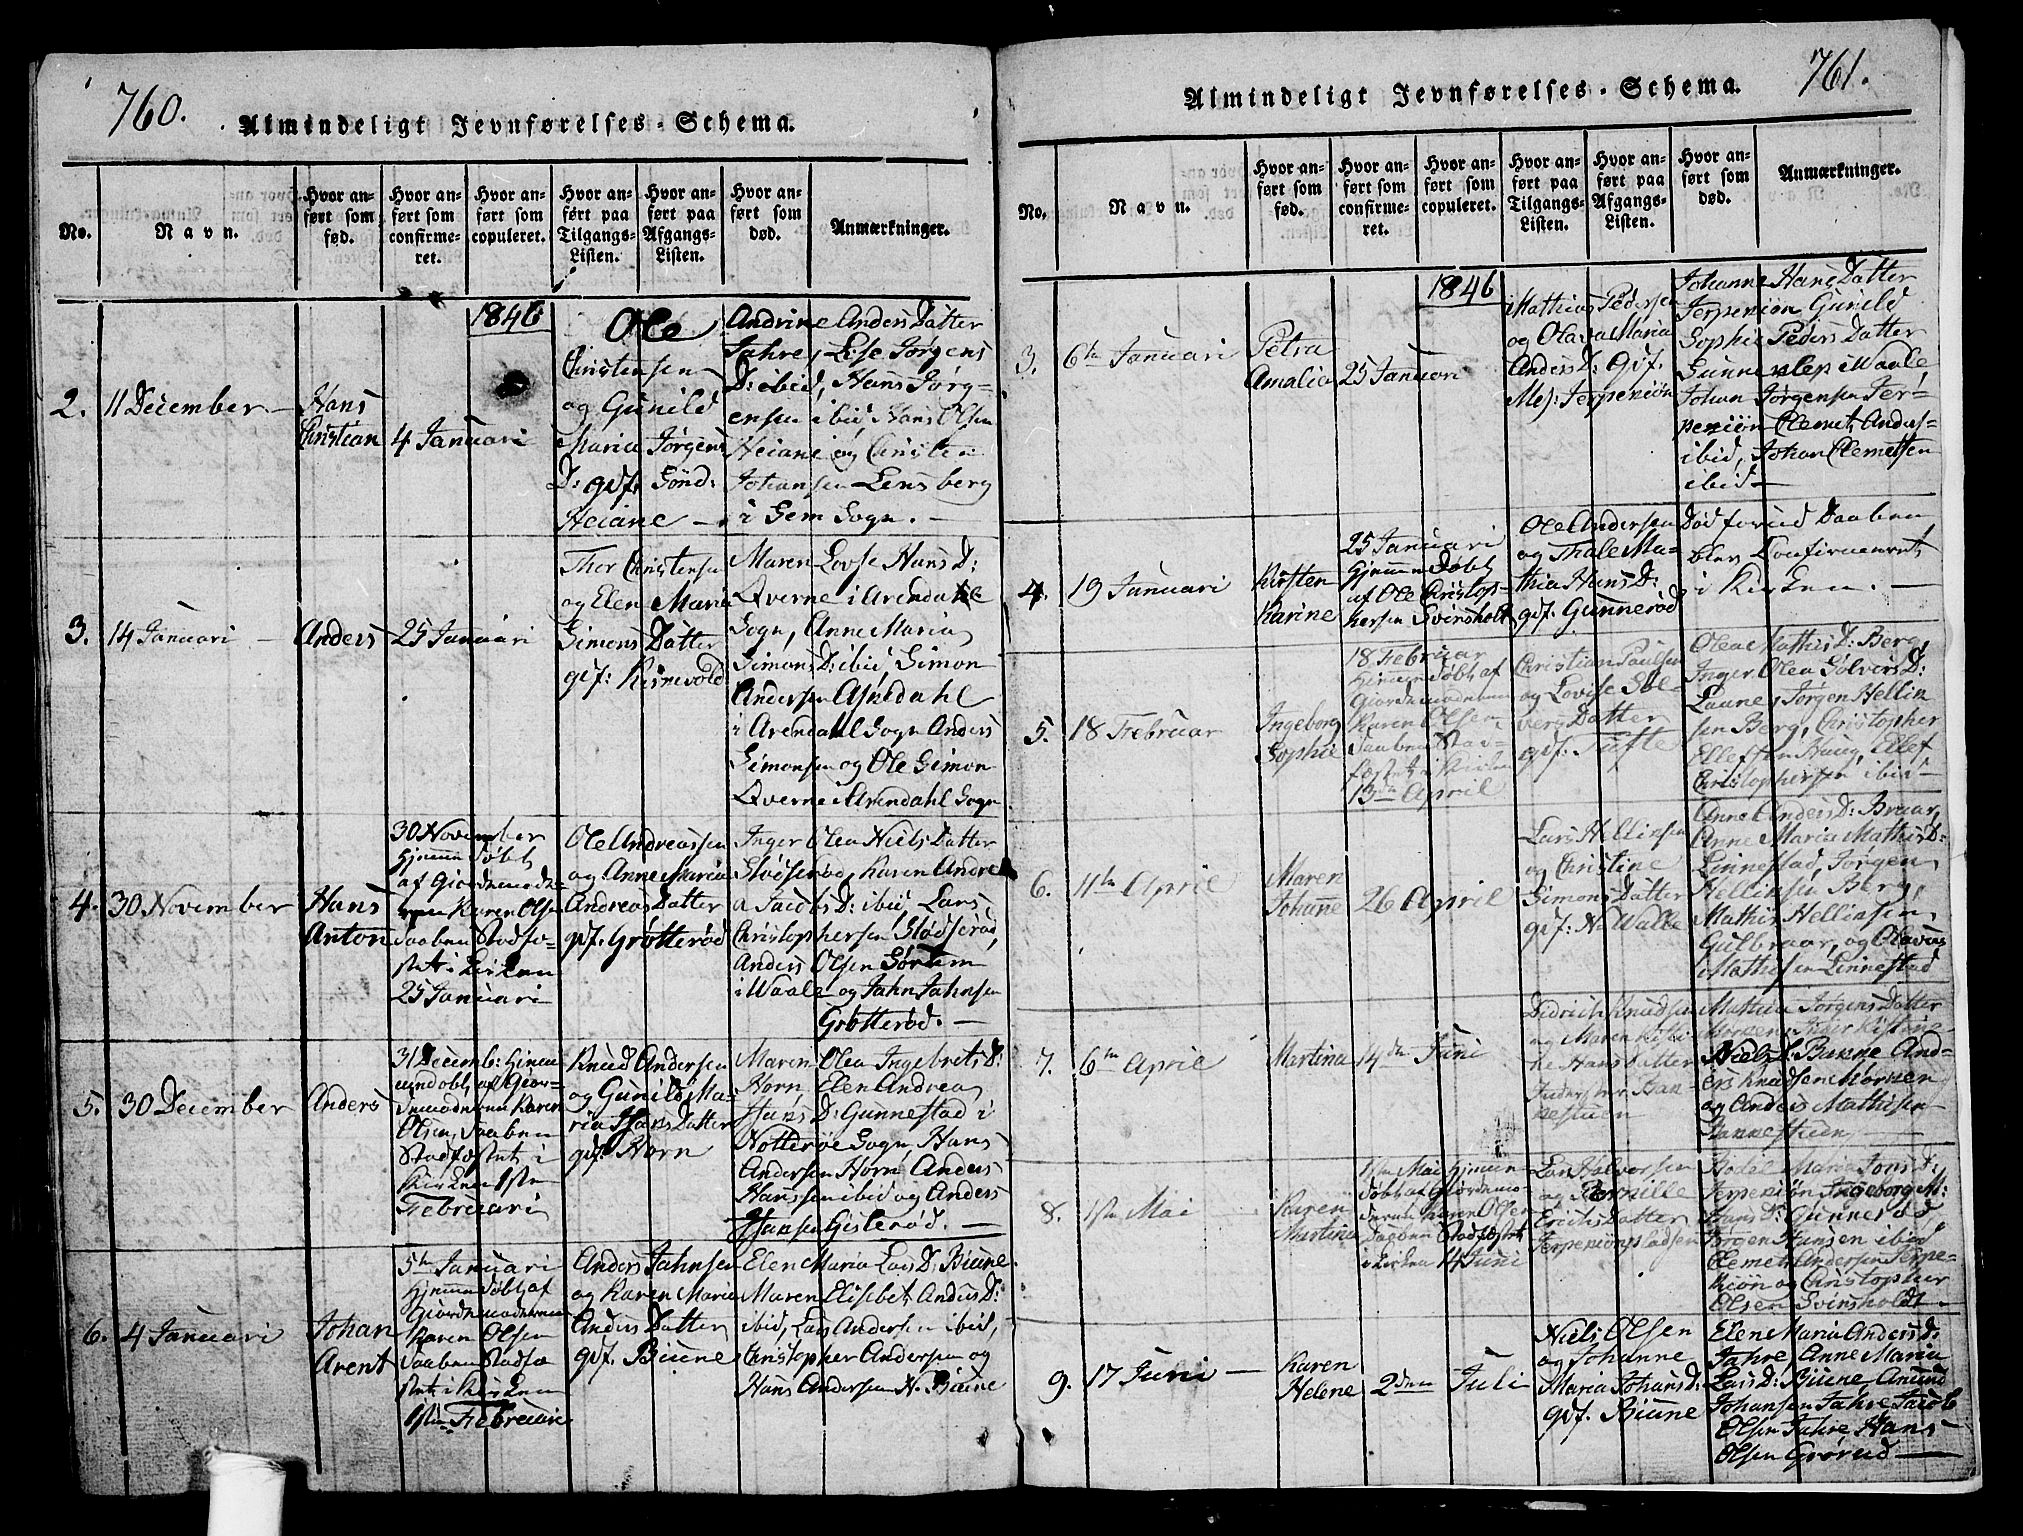 760.
Almindeligt Jevnførelses-Schema.
No.
Navn.
Hvor anført som fød.
Hvor anført som confirmeret.
Hvor anført som copuleret.
Hvor anført paa Tilgangs-Listen.
Hvor anført paa Afgangs-Listen.
Hvor anført som død.
Anmærkninger.
1846
2. 11 December
Hans
Christian
4 Januari
Ole
Christensen
og Gunild
Maria Jørgens
D: gdf. Sønd:
Heiane
Andrine Anders Datter
Jahre, Lise Jørgens
D: ibid, Hans Jørg-
ensen ibid, Hans Olsen
Heiane og Christen
Johansen Lensberg
i Sem Sogn.
3. 14 Januari
Anders
25 Januari
Thor Christensen
og Elen Maria
Simons Datter
gdf:
Maren Lovise Hans D:
Qverne i Arendahl
Sogn, Anne Maria
Simons D: ibid, Simon
Andersen Askedahl
i Arendahl Sogn Anders
Simonsen og Ole Simon
Qverne i Arendahl Sogn
4. 30 November
Hans
Anton
30 November
hjemme døbt
af Giordemode-
Karen Olsen
Daaben Stadfæ-
stet i Kirken
25 Januari
Ole Andreassen
og Anne Maria
Andreas Datter
gdf. Grøtterød
Inger Olea Niels Datter
Slødserød, Karen Andre
a Jacobs D: ibid, Lars
Christophersen Slødserød,
Anders Olsen Sørtem
i Waale og Jahn Jahnsen
Grøtterød.
5. 30 December
Anders
31 Decemb: hjem
mendøbt af Gior-
demoderen Karen
Olsen, Daaben
Stadfæstet i
Kirken 1ste
Februari
Knud Andersen
og Gunild Ma-
ria Hans Datter
gdf: Horn
Maren Olea Ingebrets D:
Horn, Elen Andrea
Hans D: Gunnestad i
Notterøe Sogn, Hans
Andersen Horn, Anders
Hanssen ibid og Anders
Hansen Gislerød.
6. 4 Januari
Johan
Arent
5te Januari
hjemme døbt af
Giordemoderen
Karen Olsen
Daaben Stadfæ
stet i Kirken
1ste Februari
Anders Jahnsen
og Karen Marie
Anders Datter
gdf. Biune
Elen Maria Lars D: Biune
Maren Elisebet Anders D:
ibid, Lars Andersen ibid,
Christopher Andersen og
Hans Andersen N. Biune
761.
Almindeligt Jevnførelses-Schema.
No.
Navn.
Hvor anført som fød.
Hvor anført som confirmeret.
Hvor anført som copuleret.
Hvor anført paa Tilgangs-Listen.
Hvor anført paa Afgangs-Listen.
Hvor anført som død.
Anmærkninger.
1846
3. 6te Januari
Petra
Amalia
25 Januari
Mathias Pedersen
og Olava Maria
Anders D: gdf.
Mej: Jerpeniøn
Johanne Hans Datter
Jerpeniøn Gunild
Sophie Peders Datter
i Waale
Johan Jørgensen Jer-
peniøn Clemet Anders-
ibid, Johan Clemetsen
ibid
4. 19 Januari
Kirsten
Karine
25 Januari
hjemme døbt
af Ole Christop-
hersen Svinsholt
Ole Andersen
og Thale Ma-
thia Hans D:
gdf: Gunnerød
Død forud Daaben
blev Confirmeret
i Kirken.
5. 18 Februar
Ingeborg
Sophie
18 Februar
hjemme døbt af
Giordemoderen
Karen Olsen
Daaben Stad-
fæstet i Kirken
13de April
Christian Paulsen
og Lovise Søl-
vers Datter
gdf: Tufte
Olea Mathis D: Berg,
Inger Olea Sølvers D:
Jørgen Hellin
sen Berg, Christopher
Ellefsen Haug, Ellef
Christophersen ibid
6. 11te April
Maren
Johanne
26 April
Lars Hellinsen
og Christine
Simons Datter
gdf: N: Walle
Anne Anders D: Bruar,
Anne Maria Mathis D:
Linnestad, Jørgen
Hellinsen Berg,
Mathis Hellinsen
Gulbraar, og Olavus
Mathisen Linnestad
7. 6te April
Martina
14de Juni
Didrich Knudsen
og Maren Kisti-
ne Hans Datter
Mathia Jørgens Datter
Niels D: Bunne And-
ers Knudsen Mørken
og Anders Mathisen
8. 1ste Mai
Karen
Martina
1ste Mai hjemme
døbt af Giordemo-
deren Karen Olsen
Daaben Stadfæstet
i Kirken 14 Juni
Lars Halvorsen
og Pernille
Erichs Datter
Bodel Maria Jons D:
Jerpeniøn Ingeborg M:
Hans D: Gunnerød,
Jørgen Hansen ibid
Clemet Andersen Jerpe-
niøn og Christopher
Olsen Svinsholdt
9. 17 Juni
Karen
Helene
2den Juli
Niels Olsen
og Johanne
Maria Johans D:
gdf. Biune
Elen Maria Anders D:
Jahre, Anne Maria
Lars D: Biune, Amund
Johansen Jahre Jacob
Olsen Jahre Hans
Olsen Grørud